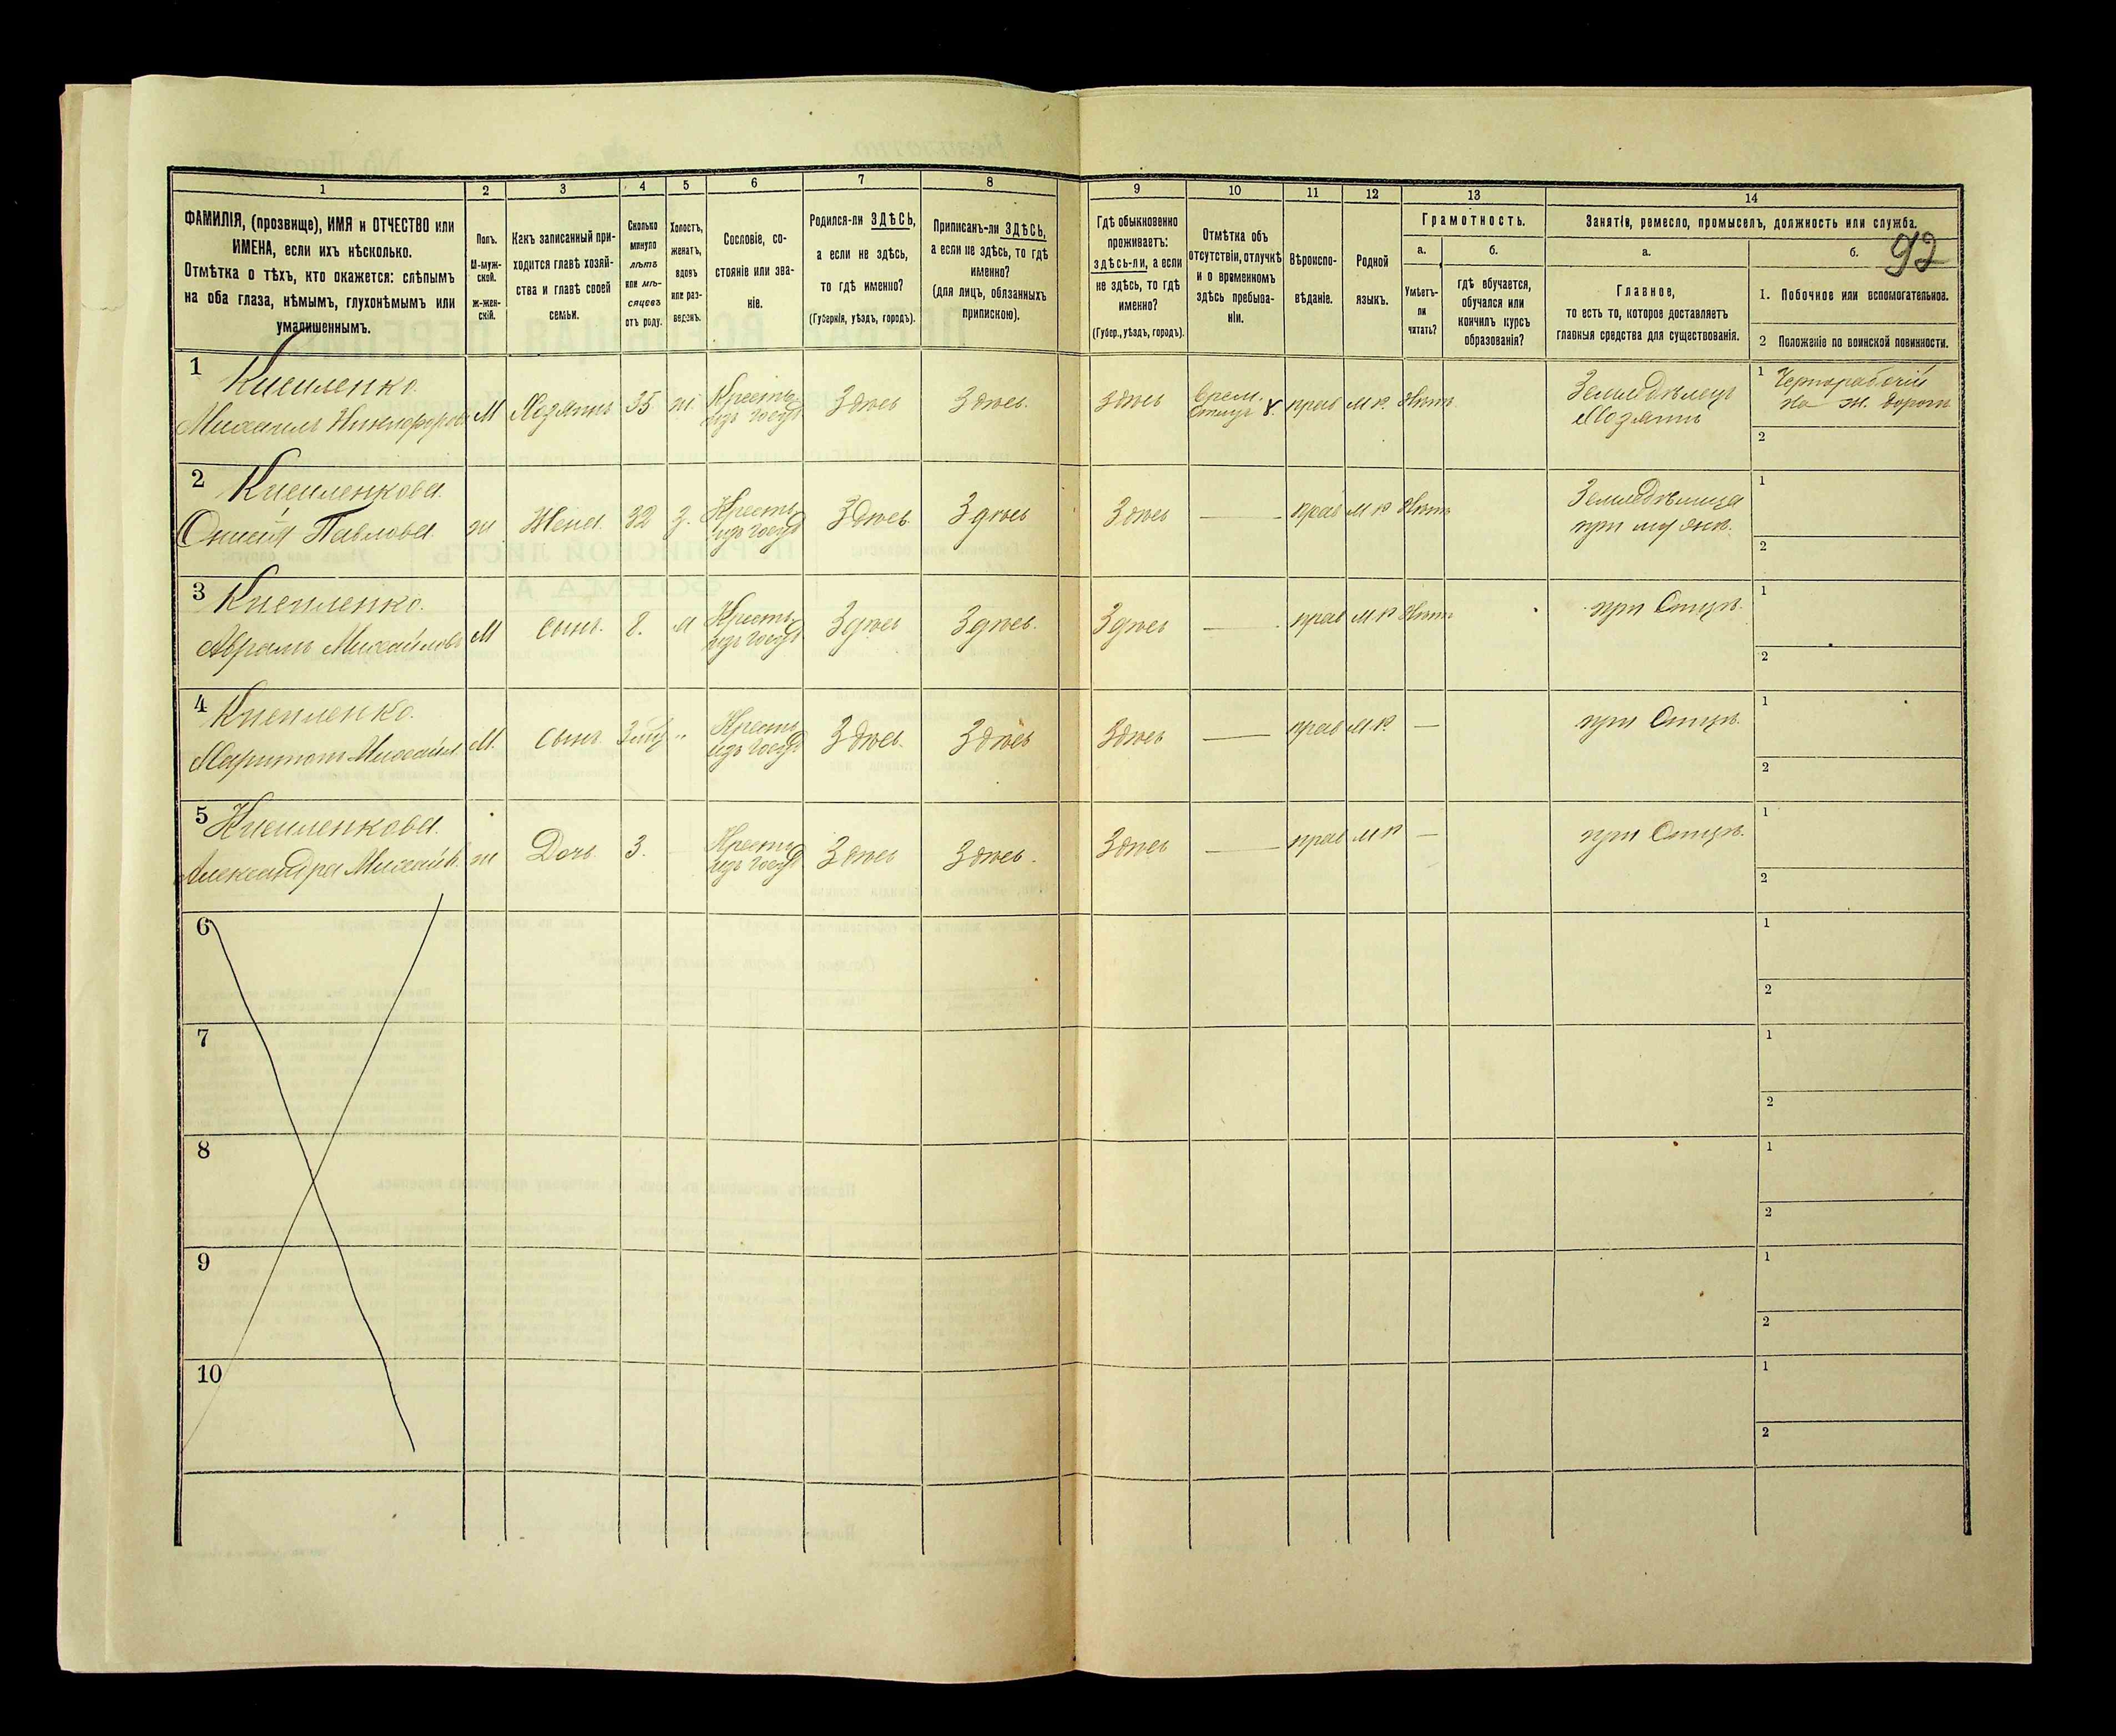 1 2 3 4 5 6 7 8 9 10 11 12 13 14
ФАМИЛІЯ, (прозвище), ИМЯ и ОТЧЕСТВО или
ИМЕНА, если ихъ нѣсколько.
Отмѣтка о тѣхъ, кто окажется: слѣпымъ
на оба глаза, нѣмымъ, глухонѣмымъ или
умалишеннымъ.
Полъ.
М-муж-
ской.
ж-жен-
скій.
Какъ записанный при-
ходится главѣ хозяй-
ства и главѣ своей
семьи.
Сколько
минуло
лѣтъ
или мѣ-
сяцевъ
отъ роду.
Холостъ,
женатъ,
вдовъ
или раз-
веденъ.
Сословіе, со-
стояніе или зва-
ніе.
Родился-ли ЗДѢСЬ,
а если не здѣсь,
то гдѣ именно?
(Губернія, уѣздъ, городъ).
Приписанъ-ли ЗДѢСЬ,
а если не здѣсь, то гдѣ
именно?
(для лицъ, обязанныхъ
припискою).
Гдѣ обыкновенно
проживаетъ:
здѣсь-ли, а если
не здѣсь, то гдѣ
именно?
(Губер., уѣздъ, городъ).
Отмѣтка объ
отсутствіи, отлучкѣ
и о временномъ
здѣсь пребыва-
ніи.
Вѣроиспо-
вѣданіе.
Родной
языкъ.
Грамотность.
а.
Умѣетъ-
ли
читать?
б.
гдѣ обучается,
обучался или
кончилъ курсъ
образованія?
Занятіе, ремесло, промыселъ, должность или служба.
а.
Главное,
то есть то, которое доставляетъ
главныя средства для существованія.
б.
92
1. Побочное или вспомогательное.
2 Положеніе по воинской повинности.
1
Михаилъ М Хозяинъ 35 ж. Крестьян. Здѣсь Здѣсь. Здѣсь прав М Р. Нѣтъ
Земледѣлецъ
Хозяинъ
1 Чернорабочій
на ж. дорогѣ
2
2
Павлова ж Жена 32 З. Крестьян. Здѣсь Здѣсь Здѣсь — прав М Р Нѣтъ
1
2
3
Михайловъ М Сынъ. 8. Крестьян. Здѣсь Здѣсь. Здѣсь — прав М Р Нѣтъ при Отцѣ.
1
2
4
Харитонъ Михайл. М. Сынъ „ Крестьян. Здѣсь. Здѣсь Здѣсь — прав М Р. — при Отцѣ.
1
2
5
Александра Михайл. ж Дочь 3. Крестьян. Здѣсь Здѣсь. Здѣсь — прав М Р — при Отцѣ.
1
2
6
1
2
7
1
2
8
1
2
9
1
2
10
1
2